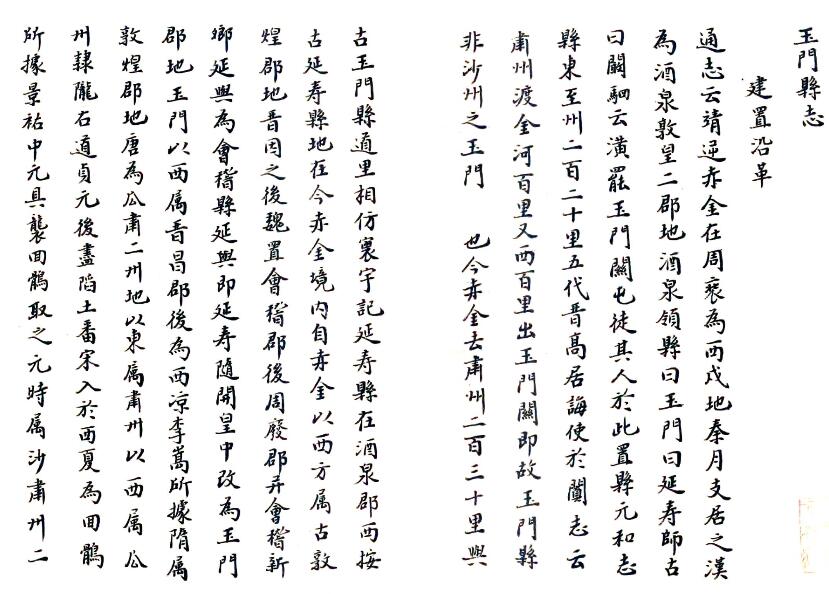 玉門縣志
建置沿革
通志云靖逆赤金在周衰為西戎地秦月支居之漢
為酒泉敦皇二郡地酒泉領縣曰玉門曰延寿師古
曰闞駰云漢罷玉門關屯徒其人於此置縣元和志
縣東至州二百二十里五代晋高居誨使於闐志云
肅州渡金河百里又西百里出玉門關即故玉門縣
非沙州之玉門 也今赤金去肅州二百三十里與
古玉門縣道里相仿寰宇記延寿縣在酒泉郡西按
古延寿縣地在今赤金境内自赤金以西方属古敦
煌郡地晋因之後魏置會稽郡後周廢郡并會稽新
鄉延興為會稽縣延興即延寿隨開皇中改為玉門
郡地玉門以西属晋昌郡後為西凉李嵩所據隋属
敦煌郡地唐為瓜肅二州地以東属肅州以西属瓜
州隸隴右道貞元後盡陷土番宋入於西夏為回鶻
所據景祐中元具襲回鶻取之元時属沙肅州二